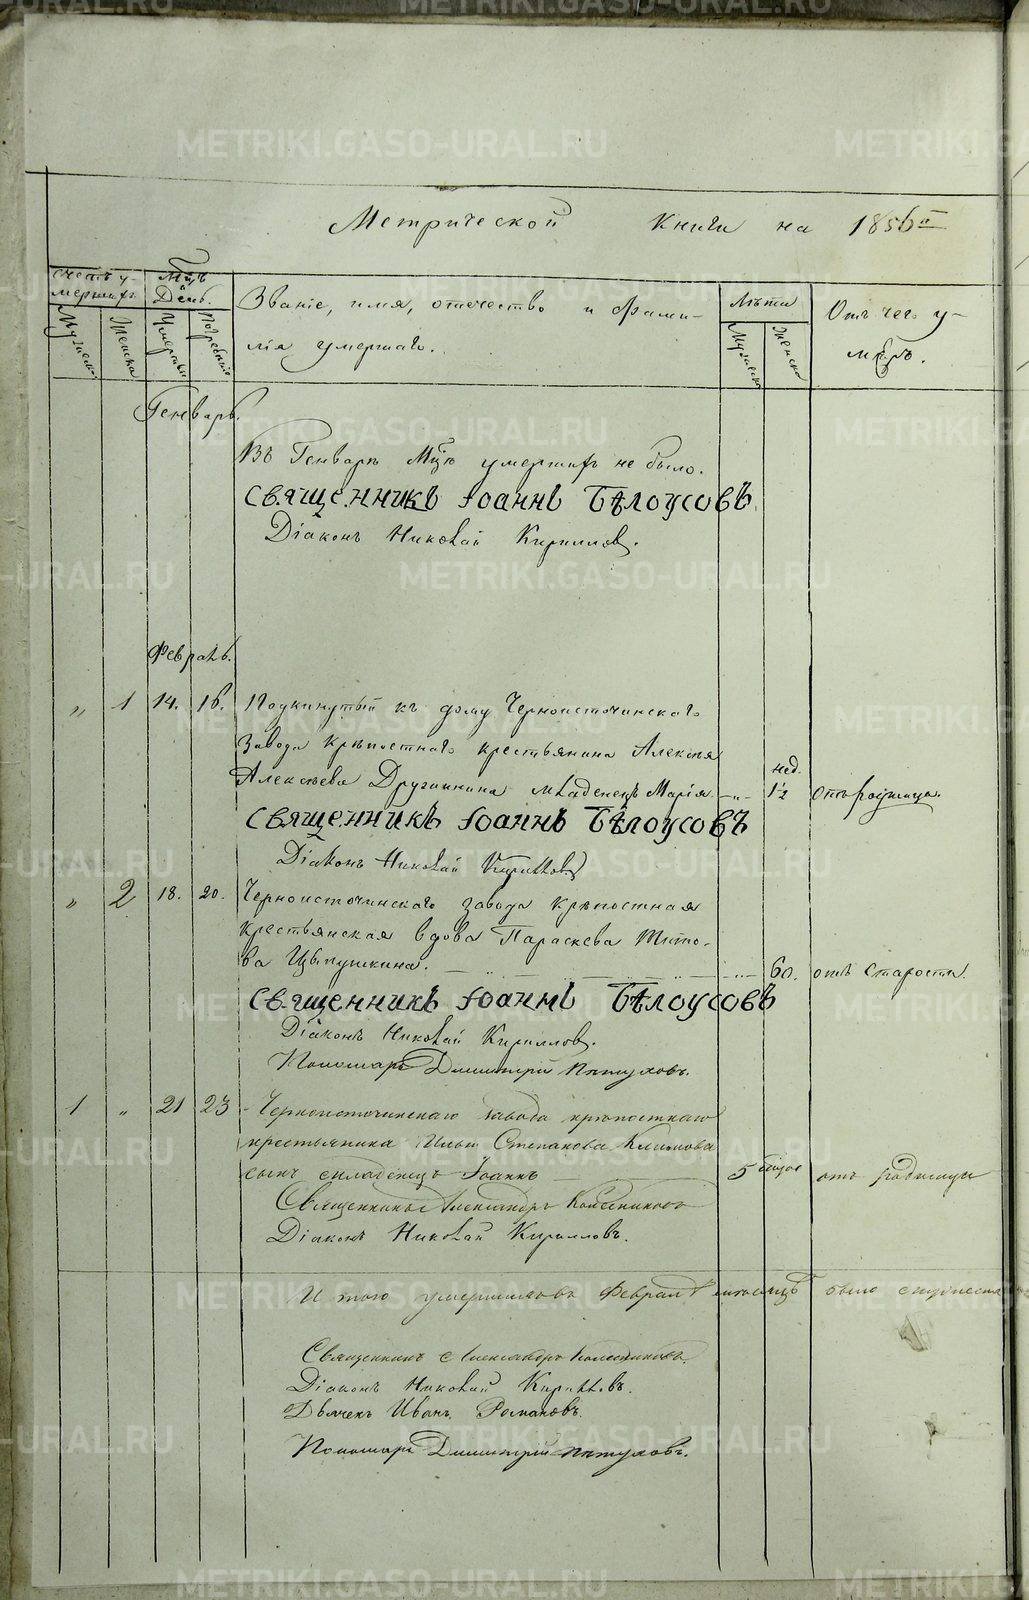 METRIKI.GASO-URAL.RU
Метрической Книги на 1856й
Счетъ умершихъ
Мужеска
Женска
Мцъ
День.
Умертвія
Погребенія
Званіе, имя, отечество и фами-
лія умершаго.
Лѣта
Мужеска
Женска
Отъ чего у-
меръ.
Генварь.
Въ Генварѣ Мцѣ умершихъ не было.
Священникъ Іоаннъ Бѣлоусовъ
Діаконъ Николай Кирилловъ.
Февраль.
„ 1 14. 16. Подкинутый къ дому Черноисточинскаго
завода крѣпостнаго крестьянина Алексѣя
Алексѣева Дружинина младенецъ Марія. „ нед. 1½ отъ родимца.
Священникъ Іоаннъ Бѣлоусовъ
Діаконъ Николай Кирилловъ
„ 2 18. 20. Черноисточинскаго завода крѣпостная
крестьянская вдова Параскева Тито-
ва Цыпушкина. „ 60. отъ старости.
Священникъ Іоаннъ Бѣлоусовъ
Діаконъ Николай Кирилловъ.
Пономарь Димитрій Пѣтуховъ.
1 „ 21 23 Черноисточинскаго завода крѣпостнаго
крестьянина Ильи Степанова Климова
сынъ младенецъ Іоаннъ 5 отъ родимца
Священникъ Александръ Колесниковъ
Діаконъ Николай Кирилловъ.
И того умершихъ въ Февралѣ мѣсяцѣ было мужеска
Священникъ Александръ Колесниковъ
Діаконъ Николай Кирилловъ.
Дьячекъ Иванъ Романовъ.
Пономарь Димитрій Пѣтуховъ.